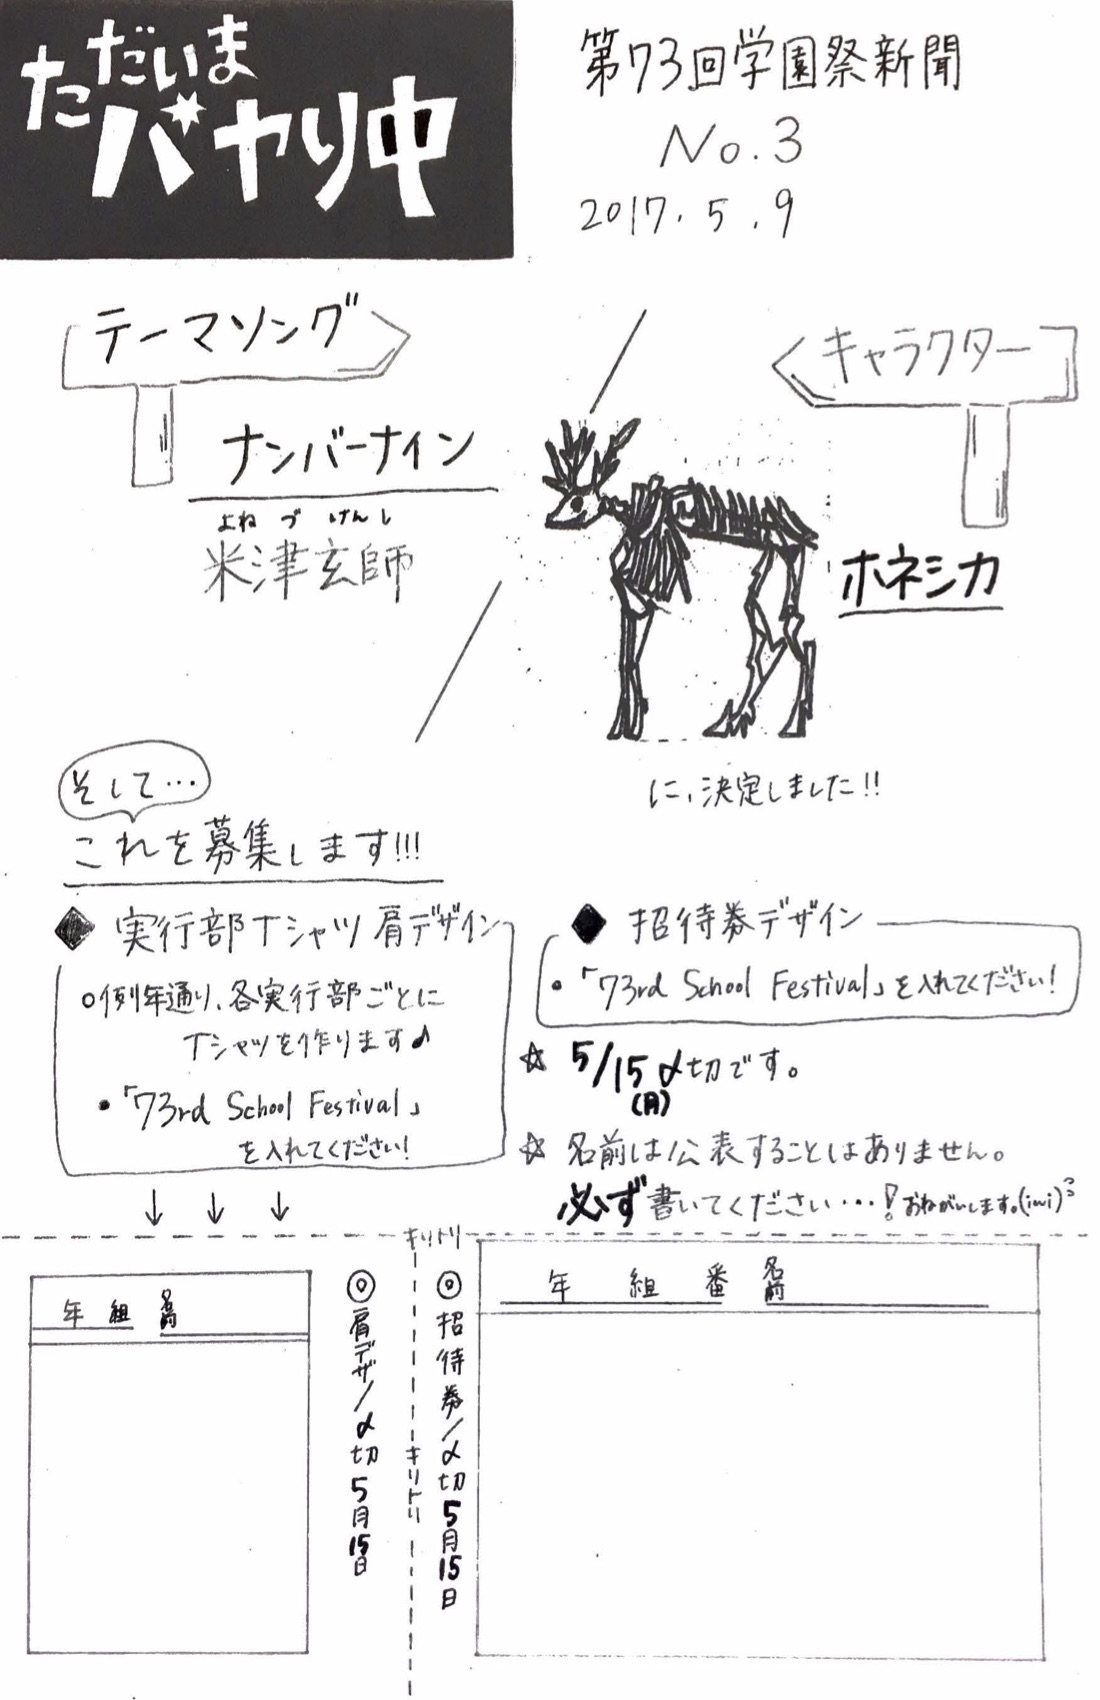 ただいま
バヤリ中
第73回学園祭新聞
No.3
2017.5.9
テーマソング
ナンバーナイン
よねづけんし
米津玄師
キャラクター
ホネシカ
に、決定しました!!
そして…
これを募集します!!!
◆実行部Tシャツ肩デザイン
○例年通り、各実行部ごとに
Tシャツを作ります♪
•「73rd School Festival」
を入れてください!
◆招待券デザイン
•「73rd School Festival」を入れてください!
☆ 5/15〆切です。
(月)
☆ 名前は公表することはありません。
必ず書いてください…! おねがいします。
キリトリ
年 組 名前
◎肩デザ/〆切5月15日
キリトリ
◎招待券/〆切5月15日
年 組 番 名前